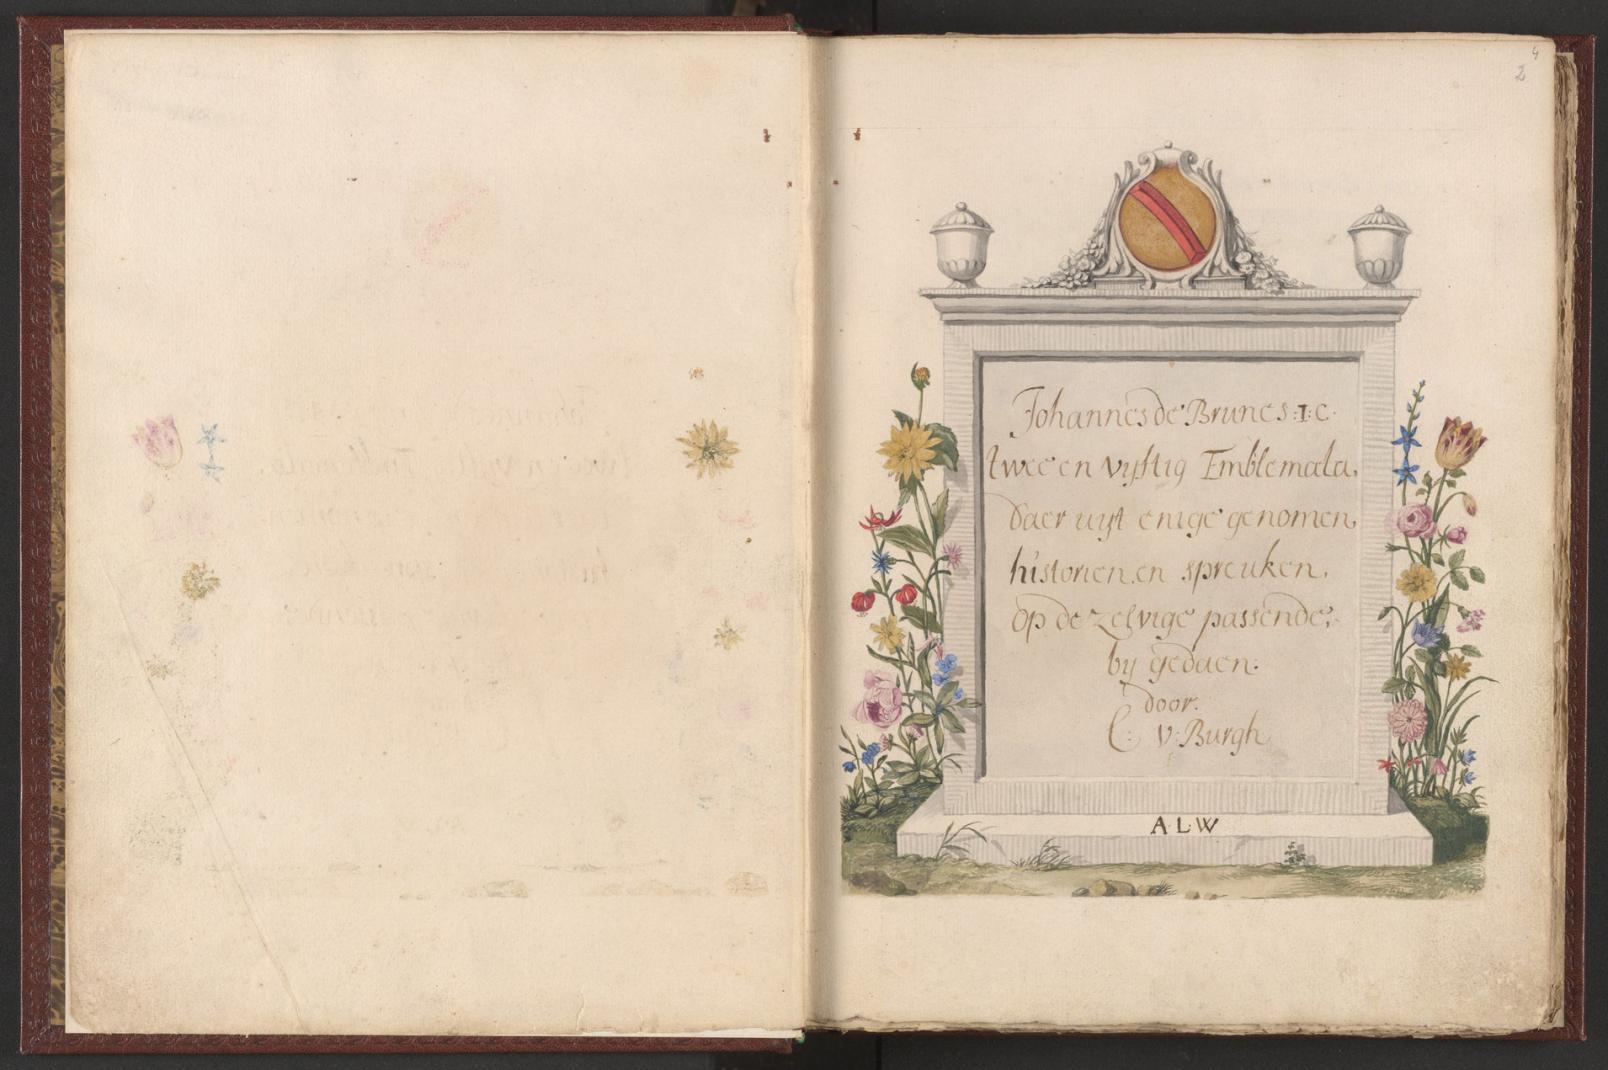 4
2
Johannes de Brunes :I:C.
twee en vyftig Emblemata,
daer uyt enige genomen,
historien en spreuken,
op de zelvige passende,
by gedaen.
door.
C: v: Burgh
A·L·W